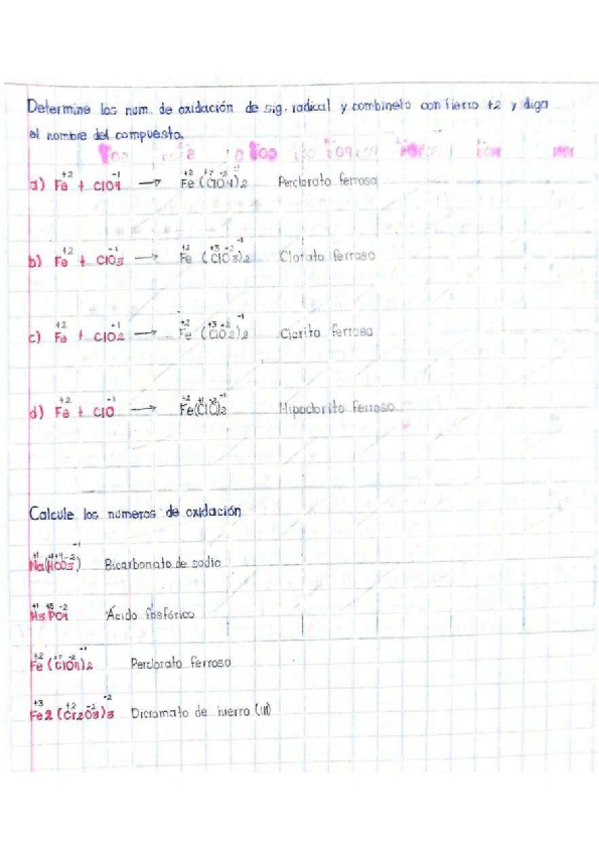 Determine los num. de oxidación de sig. radical y combinelo con fierro +2 y diga
el nombre del compuesto.
a) Fe⁺² + ClO4⁻¹ → Fe⁺²(Cl⁺⁷O⁻²4)⁻¹2 Perclorato ferroso
b) Fe⁺² + ClO3⁻¹ → Fe⁺²(Cl⁺⁵O⁻²3)⁻¹2 Clorato ferroso
c) Fe⁺² + ClO2⁻¹ → Fe⁺²(Cl⁺³O⁻²2)⁻¹2 Clorito ferroso
d) Fe⁺² + ClO⁻¹ → Fe⁺²(Cl⁺¹O⁻²)⁻¹2 Hipoclorito ferroso
Calcule los números de oxidación
Na⁺¹(H⁺¹C⁺⁴O⁻²3)⁻¹ Bicarbonato de sodio
H⁺¹3P⁺⁵O⁻²4 Ácido fosfórico
Fe⁺²(Cl⁺⁷O⁻²4)⁻¹2 Perclorato ferroso
Fe⁺³2(Cr⁺²2O⁻²3)⁻²3 Dicromato de hierro (III)